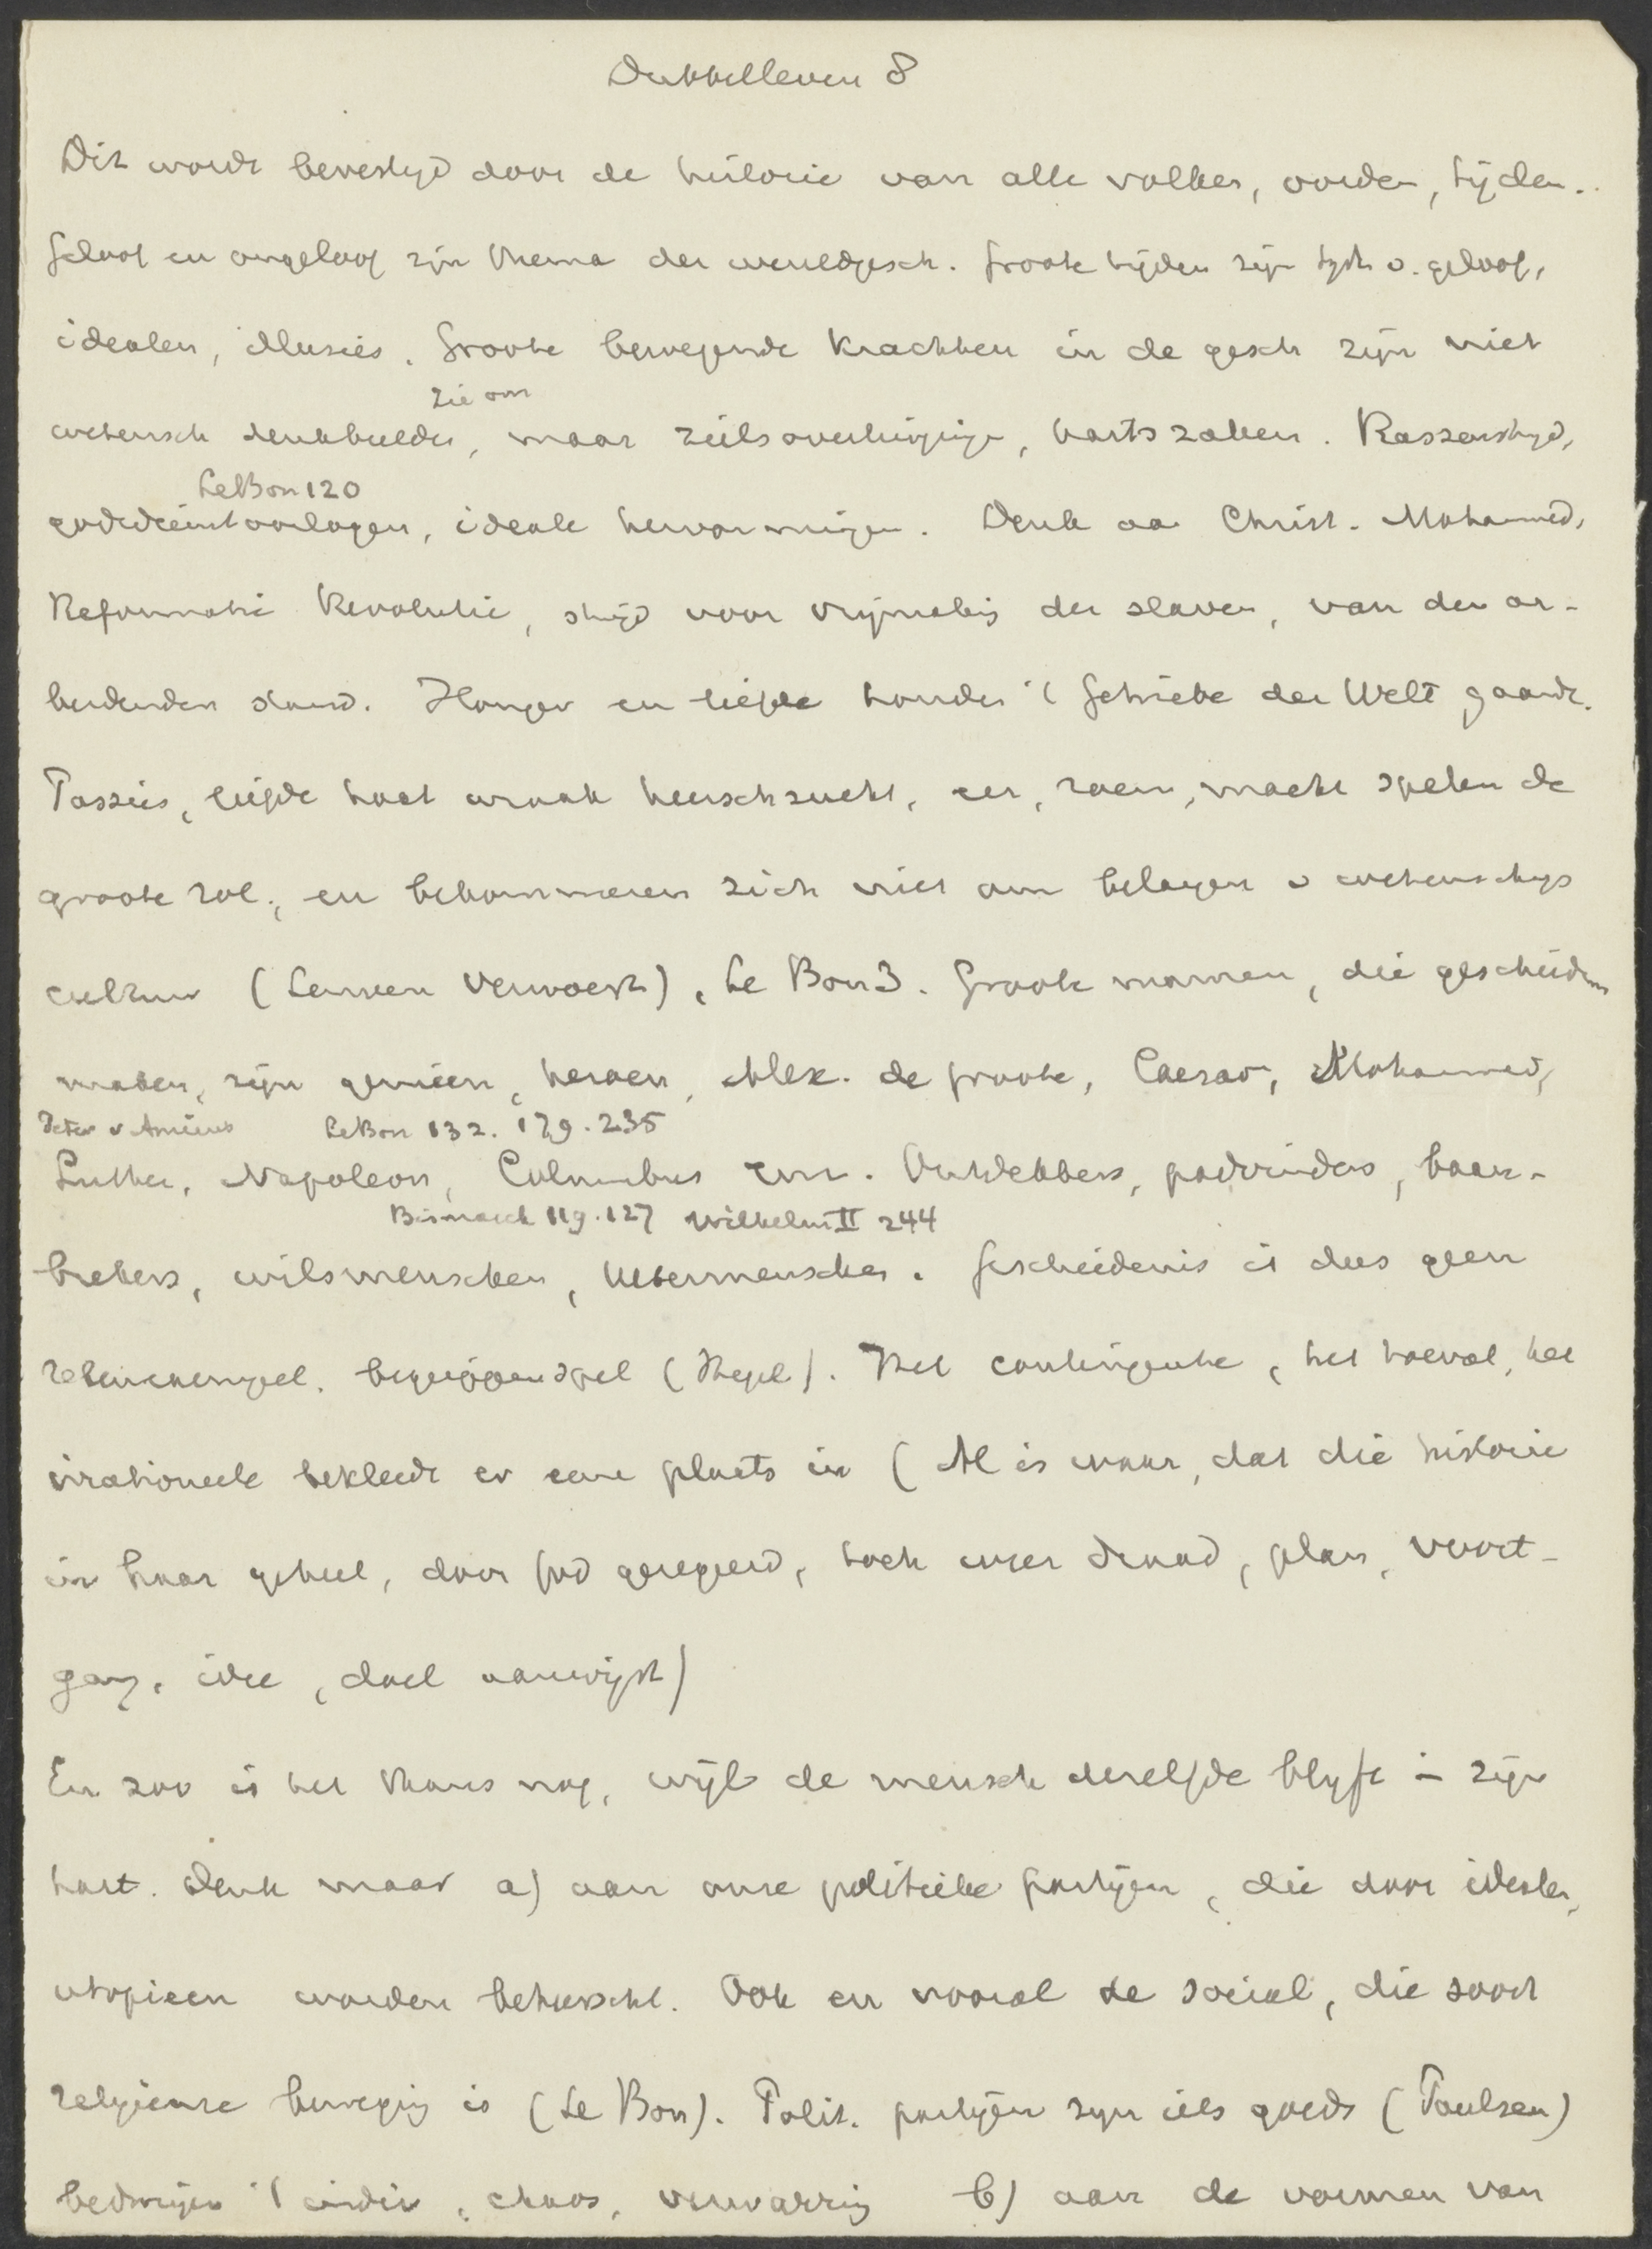 Dubbelleven 8
Dit wordt bevestigd door de historie van alle volken, oorden, tijden.
Geloof en ongeloof zijn thema der wereldgesch. Groote tijden zijn tijden v. geloof,
idealen, illusies. Groote bewegende krachten in de gesch zijn niet
zie om
wetensch denkbeelden, maar zielsovertuigingen, hartszaken. Rassenstrijd,
LeBon 120
godsdienstoorlogen, ideale hervormingen. Denk aan Christ. Mohammed,
Reformatie Revolutie, strijd voor vrijmaking der slaven, van den ar-
beidenden stand. Honger en liefde houden 't Getriebe der Welt gaande.
Passies, liefde haat wraak heerschzucht, eer, roem, macht spelen de
groote rol, en bekommeren zich niet om belangen v wetenschap
cultuur (Leuven verwoest), Le Bon 3. Groote mannen, die geschieden
maken, zijn genieën, heroen, Alex. de Groote, Caesar, Mohammed,
Peter v Amiens LeBon 132. 179. 235
Luther, Napoleon, Columbus enz. Ontdekkers, padvinders, baan-
Bismarck 119. 127 Wilhelm II 244
brekers, wilsmenschen, Uebermenschen. Geschiedenis is dus geen
rekenexempel, begrippenspel (Hegel). Het contingente, het toeval, het
irrationeele bekleedt er eene plaats in (Al is waar, dat die historie
in haar geheel, door God geregeerd, toch weer draad, plan, voort-
gang, idee, doel aanwijst)
En zoo is het thans nog, wijl de mensch dezelfde blijft in zijn
hart. Denk maar a) aan onze politieke partijen, die door idealen,
utopieen worden beheerscht. Ook en vooral de social, die soort
religieuze beweging is (Le Bon). Polit. partijen zijn iets goeds (Paulsen)
bedwingen 't indiv, chaos, verwarring b) aan de vormen van